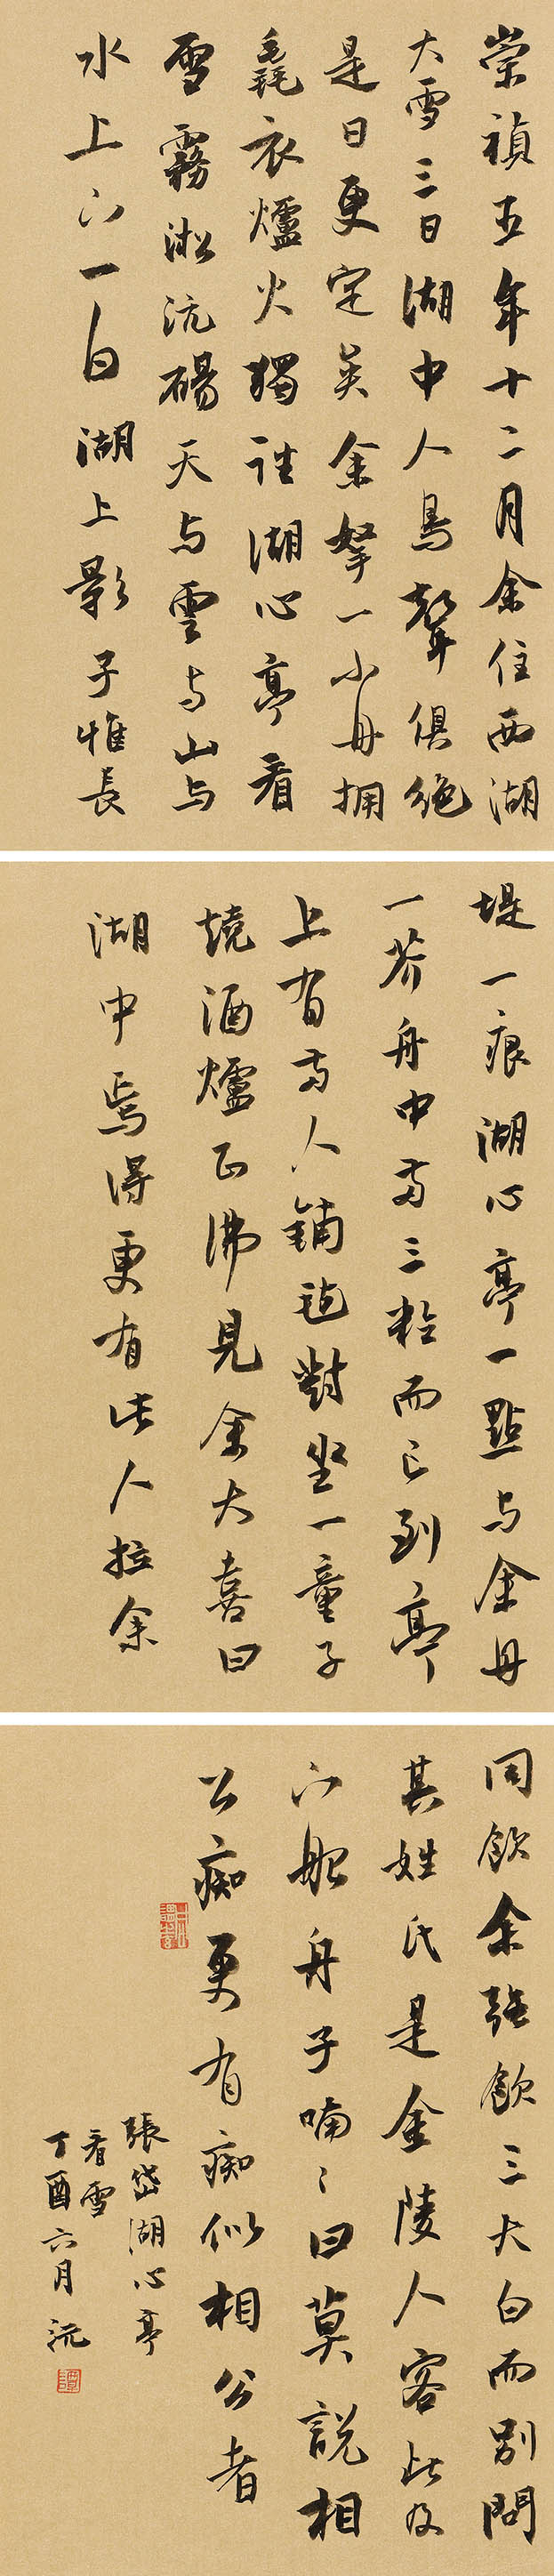 崇禎五年十二月余住西湖
大雪三日湖中人鳥聲俱絕
是日更定矣余拏一小舟拥
毳衣爐火獨往湖心亭看
雪霧淞沆碭天与雲与山与
水上下一白湖上影子惟長
堤一痕湖心亭一點与余舟
一芥舟中两三粒而已到亭
上有两人鋪氈對坐一童子
燒酒爐正沸見余大喜曰
湖中焉得更有此人拉余
同飲余强飲三大白而别問
其姓氏是金陵人客此及
下船舟子喃〻曰莫說相
公痴更有痴似相公者
張岱湖心亭
看雪
丁酉六月沅
譚